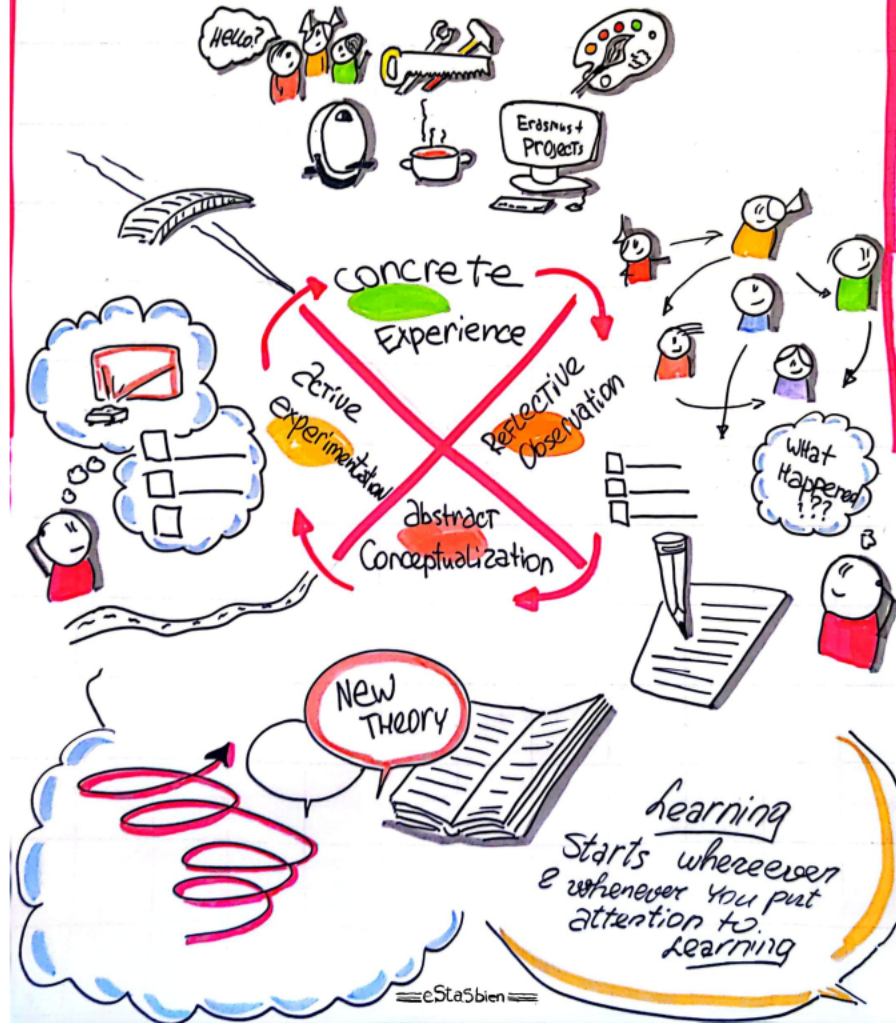 Hello?
Erasmus+
Projects
concrete
Experience
Reflective
Observation
abstract
Conceptualization
active
experimentation
What
Happened
!??
New
Theory
Learning
Starts whereever
& whenever you put
attention to
Learning
eStaSbien